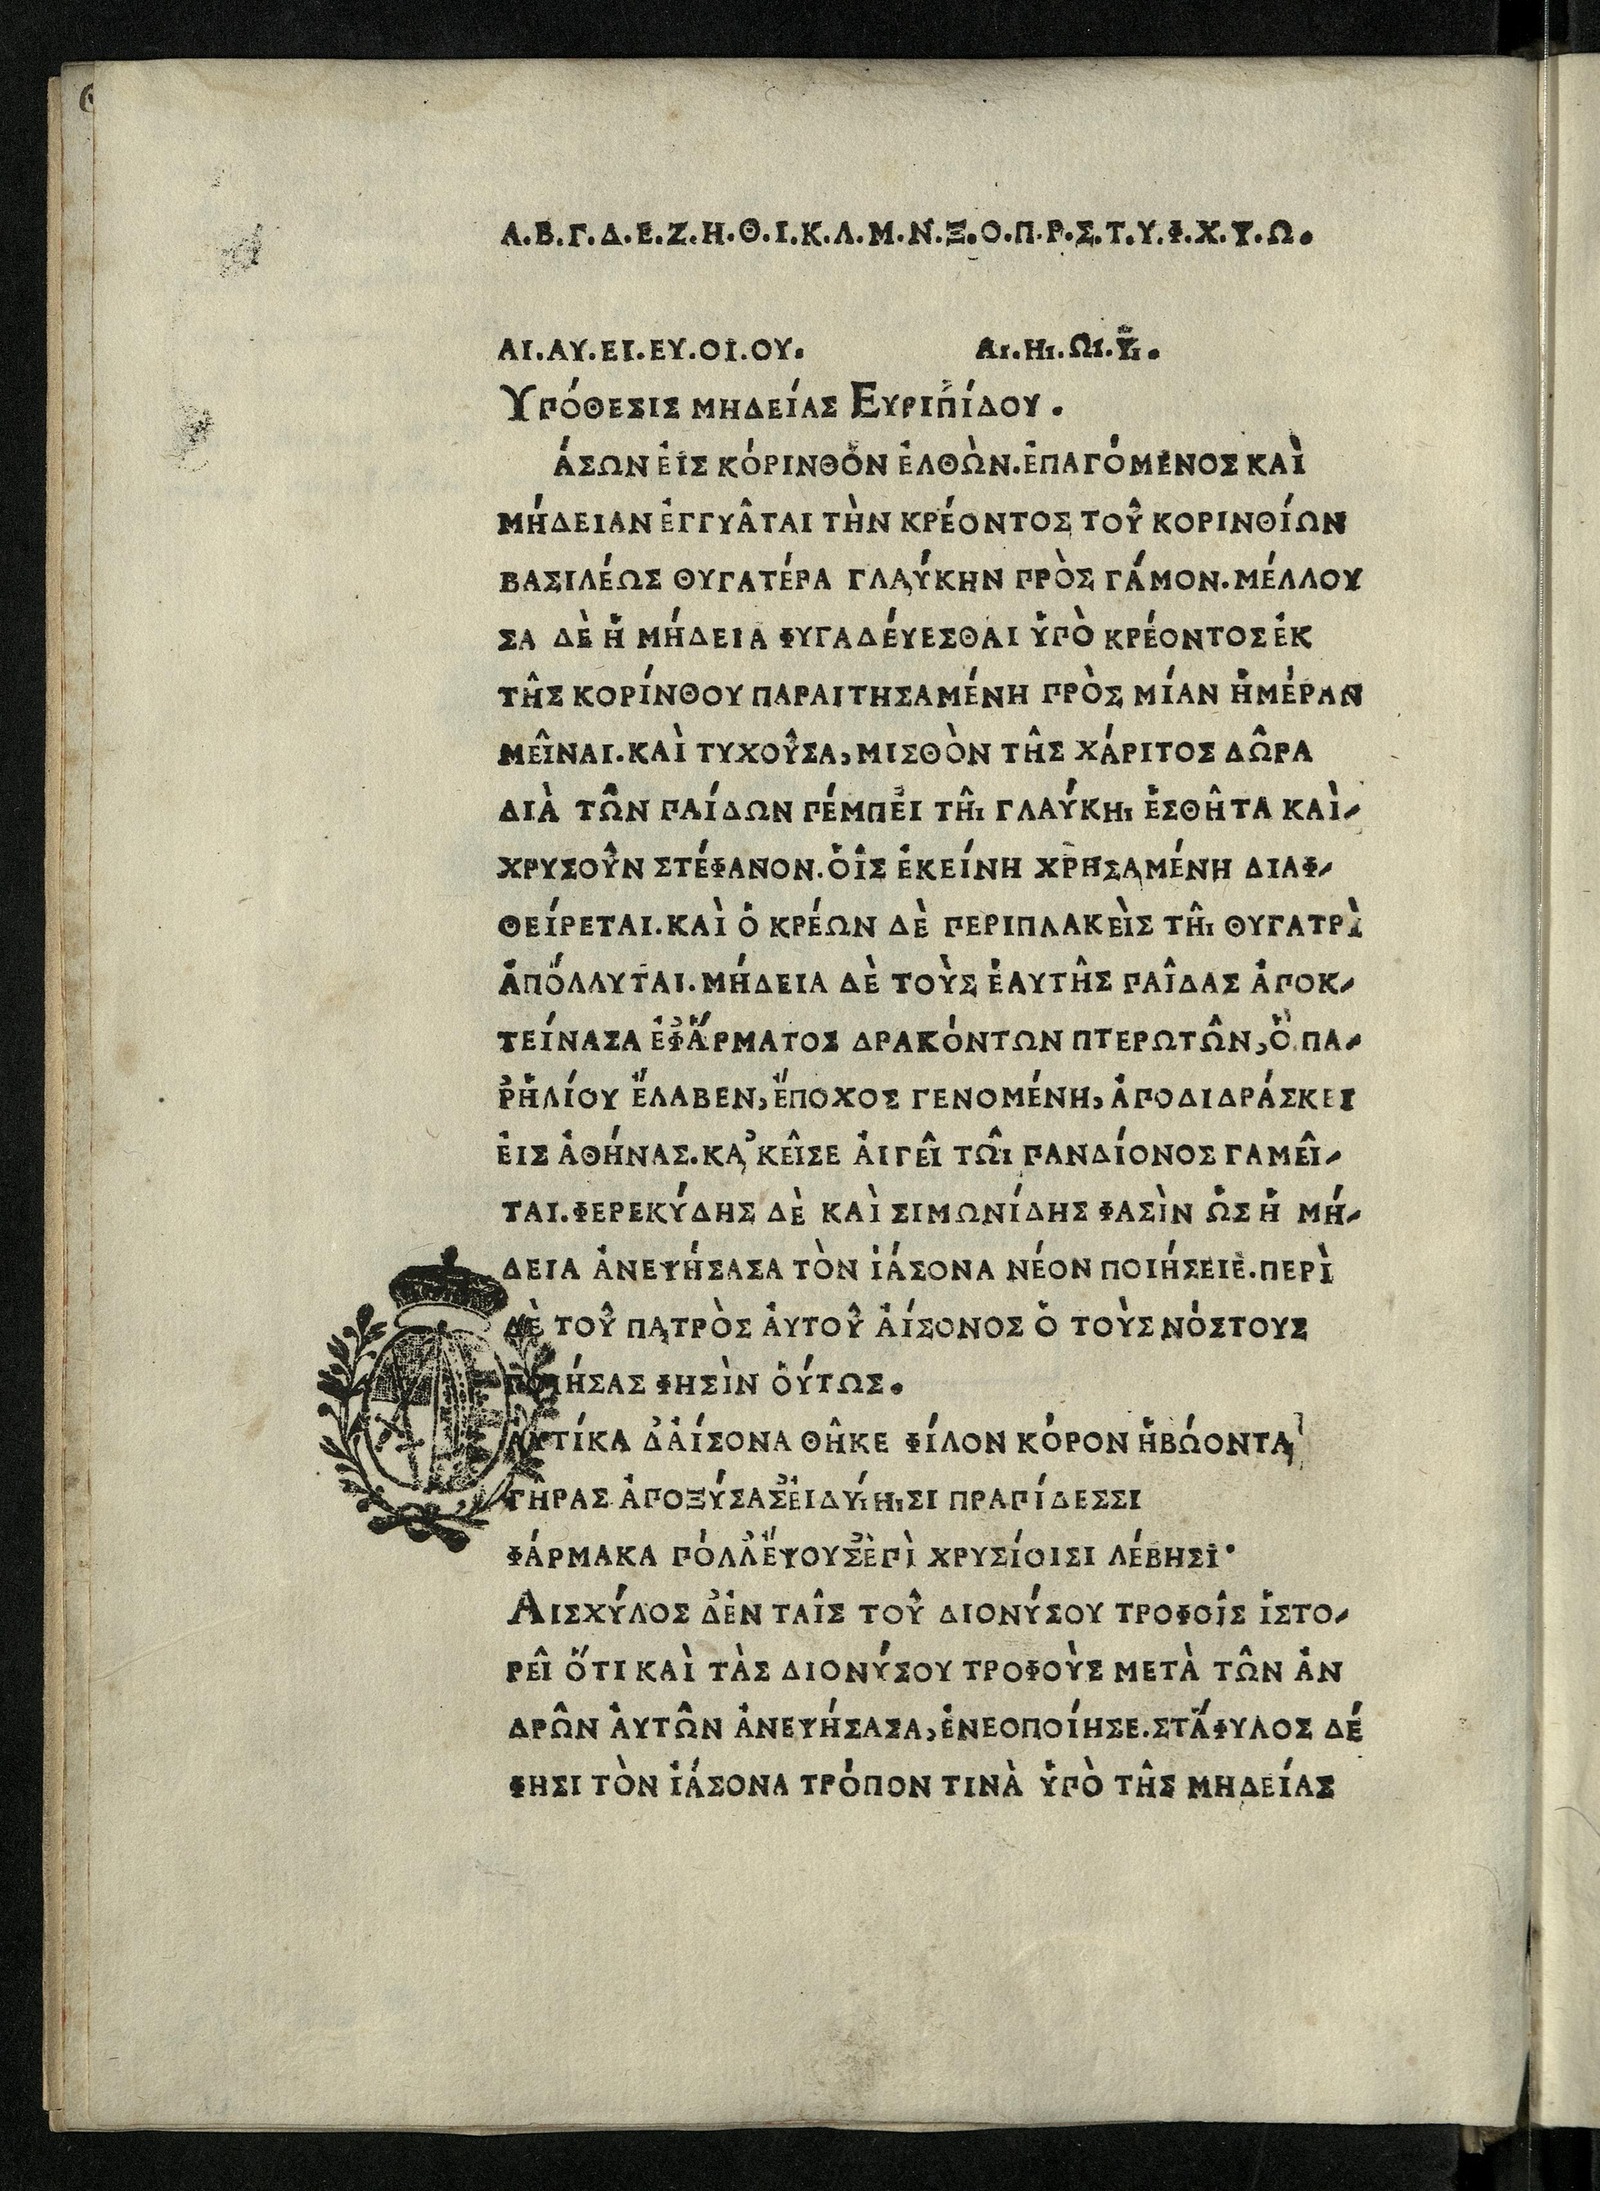 Α.Β.Γ.Δ.Ε.Ζ.Η.Θ.Ι.Κ.Λ.Μ.Ν.Ξ.Ο.Π.Ρ.Σ.Τ.Υ.Φ.Χ.Ψ.Ω.
ΑΙ.ΑΥ.ΕΙ.ΕΥ.ΟΙ.ΟΥ. Αι.Ηι.Ωι.Υι.
ΥΠΌΘΕΣΙΣ ΜΗΔΕΊΑΣ ΕΥΡΙΠΊΔΟΥ.
ΆΣΩΝ ἘΙΣ ΚΌΡΙΝΘΟΝ ἘΛΘῺΝ.ἘΠΑΓΌΜΕΝΟΣ ΚΑῚ
ΜΉΔΕΙΑΝ ἘΓΓΥΑ͂ΤΑΙ ΤῊΝ ΚΡΈΟΝΤΟΣ ΤΟΥ͂ ΚΟΡΙΝΘΊΩΝ
ΒΑΣΙΛΈΩΣ ΘΥΓΑΤΈΡΑ ΓΛΑΎΚΗΝ ΠΡῸΣ ΓΆΜΟΝ.ΜΈΛΛΟΥ
ΣΑ ΔῈ Ἡ ΜΉΔΕΙΑ ΦΥΓΑΔΈΥΕΣΘΑΙ ὙΠῸ ΚΡΈΟΝΤΟΣ ἘΚ
ΤΗ͂Σ ΚΟΡΊΝΘΟΥ ΠΑΡΑΙΤΗΣΑΜΈΝΗ ΠΡῸΣ ΜΊΑΝ ἩΜΈΡΑΝ
ΜΕΙ͂ΝΑΙ.ΚΑῚ ΤΥΧΟΥ͂ΣΑ,ΜΙΣΘῸΝ ΤΗ͂Σ ΧΆΡΙΤΟΣ ΔΩ͂ΡΑ
ΔΙᾺ ΤΩ͂Ν ΠΑΊΔΩΝ ΠΈΜΠΕΙ ΤΗ͂ι ΓΛΑΎΚΗι ἘΣΘΗ͂ΤΑ ΚΑῚ-
ΧΡΥΣΟΥ͂Ν ΣΤΈΦΑΝΟΝ.ὉΙ͂Σ ἘΚΕΊΝΗ ΧΡΗΣΑΜΈΝΗ ΔΙΑΦ-
ΘΕΊΡΕΤΑΙ.ΚΑῚ Ὁ ΚΡΈΩΝ ΔῈ ΠΕΡΙΠΛΑΚΕῚΣ ΤΗ͂ι ΘΥΓΑΤΡῚ
ἈΠΌΛΛΥΤΑΙ.ΜΉΔΕΙΑ ΔῈ ΤΟῪΣ ἙΑΥΤΗ͂Σ ΠΑΙ͂ΔΑΣ ἈΠΟΚ-
ΤΕΊΝΑΣΑ ἘΦ᾽ἍΡΜΑΤΟΣ ΔΡΑΚΌΝΤΩΝ ΠΤΕΡΩΤΩ͂Ν,Ὃ ΠΑ-
Ρ᾽ἩΛΊΟΥ ἜΛΑΒΕΝ,ἜΠΟΧΟΣ ΓΕΝΟΜΈΝΗ,ἈΠΟΔΙΔΡΆΣΚΕΙ
ἘΙΣ ἈΘΉΝΑΣ.ΚΑ᾽ΚΕΙ͂ΣΕ ἈΙΓΕΙ͂ ΤΩ͂ι ΠΑΝΔΊΟΝΟΣ ΓΑΜΕΙ͂-
ΤΑΙ.ΦΕΡΕΚΎΔΗΣ ΔῈ ΚΑῚ ΣΙΜΩΝΊΔΗΣ ΦΑΣῚΝ ὩΣ Ἡ ΜΉ-
ΔΕΙΑ ἈΝΕΨΉΣΑΣΑ ΤῸΝ ἸΆΣΟΝΑ ΝΈΟΝ ΠΟΙΉΣΕΙΕ.ΠΕΡῚ
ΔῈ ΤΟΥ͂ ΠΑΤΡῸΣ ἈΥΤΟΥ͂ ἈΊΣΟΝΟΣ Ὁ ΤΟῪΣ ΝΌΣΤΟΥΣ
ΠΟΙΉΣΑΣ ΦΗΣῚΝ ὉΎΤΩΣ.
ΑΥΤΊΚΑ Δ᾽ἈΊΣΟΝΑ ΘΗ͂ΚΕ ΦΊΛΟΝ ΚΌΡΟΝ ἩΒΏΟΝΤΑ
ΓΗ͂ΡΑΣ ἈΠΟΞΎΣΑΣ᾽ἘΙΔΥΊΗιΣΙ ΠΡΑΠΊΔΕΣΣΙ
ΦΆΡΜΑΚΑ ΠΌΛΛ᾽ἝΨΟΥΣ᾽ἘΠῚ ΧΡΥΣΊΟΙΣΙ ΛΈΒΗΣΙ·
ΑΙΣΧΎΛΟΣ Δ᾽ἘΝ ΤΑΙ͂Σ ΤΟΥ͂ ΔΙΟΝΎΣΟΥ ΤΡΟΦΟΙ͂Σ ἹΣΤΟ-
ΡΕΙ͂ ὍΤΙ ΚΑῚ ΤᾺΣ ΔΙΟΝΎΣΟΥ ΤΡΟΦΟῪΣ ΜΕΤᾺ ΤΩ͂Ν ἈΝ
ΔΡΩ͂Ν ἈΥΤΩ͂Ν ἈΝΕΨΉΣΑΣΑ,ἘΝΕΟΠΟΊΗΣΕ.ΣΤΆΦΥΛΟΣ ΔΈ
ΦΗΣΙ ΤῸΝ ἸΆΣΟΝΑ ΤΡΌΠΟΝ ΤΙΝᾺ ὙΠῸ ΤΗ͂Σ ΜΗΔΕΊΑΣ